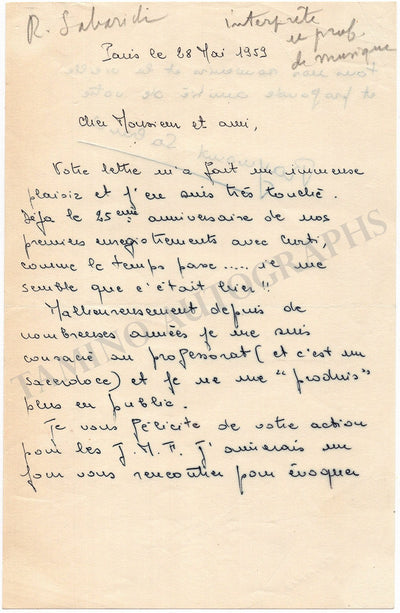 R. Sabaridi
interprète
et prof.
de musique
Paris le 28 Mai 1959
Cher Monsieur et ami,
Votre lettre m'a fait un immense
plaisir et j'en suis très touché.
Déja le 25ème anniversaire de nos
premiers enregistrements avec
comme le temps passe ..... il me
semble que c'était hier !!
Malheureusement depuis de
nombreuses années je me suis
consacré au professorat (et c'est un
sacerdoce) et je ne me "produis"
plus en public.
Je vous félicite de votre action
pour les J.M.F. J'aimerais un
jour vous rencontrer pour évoquer
TAMINO AUTOGRAPHS